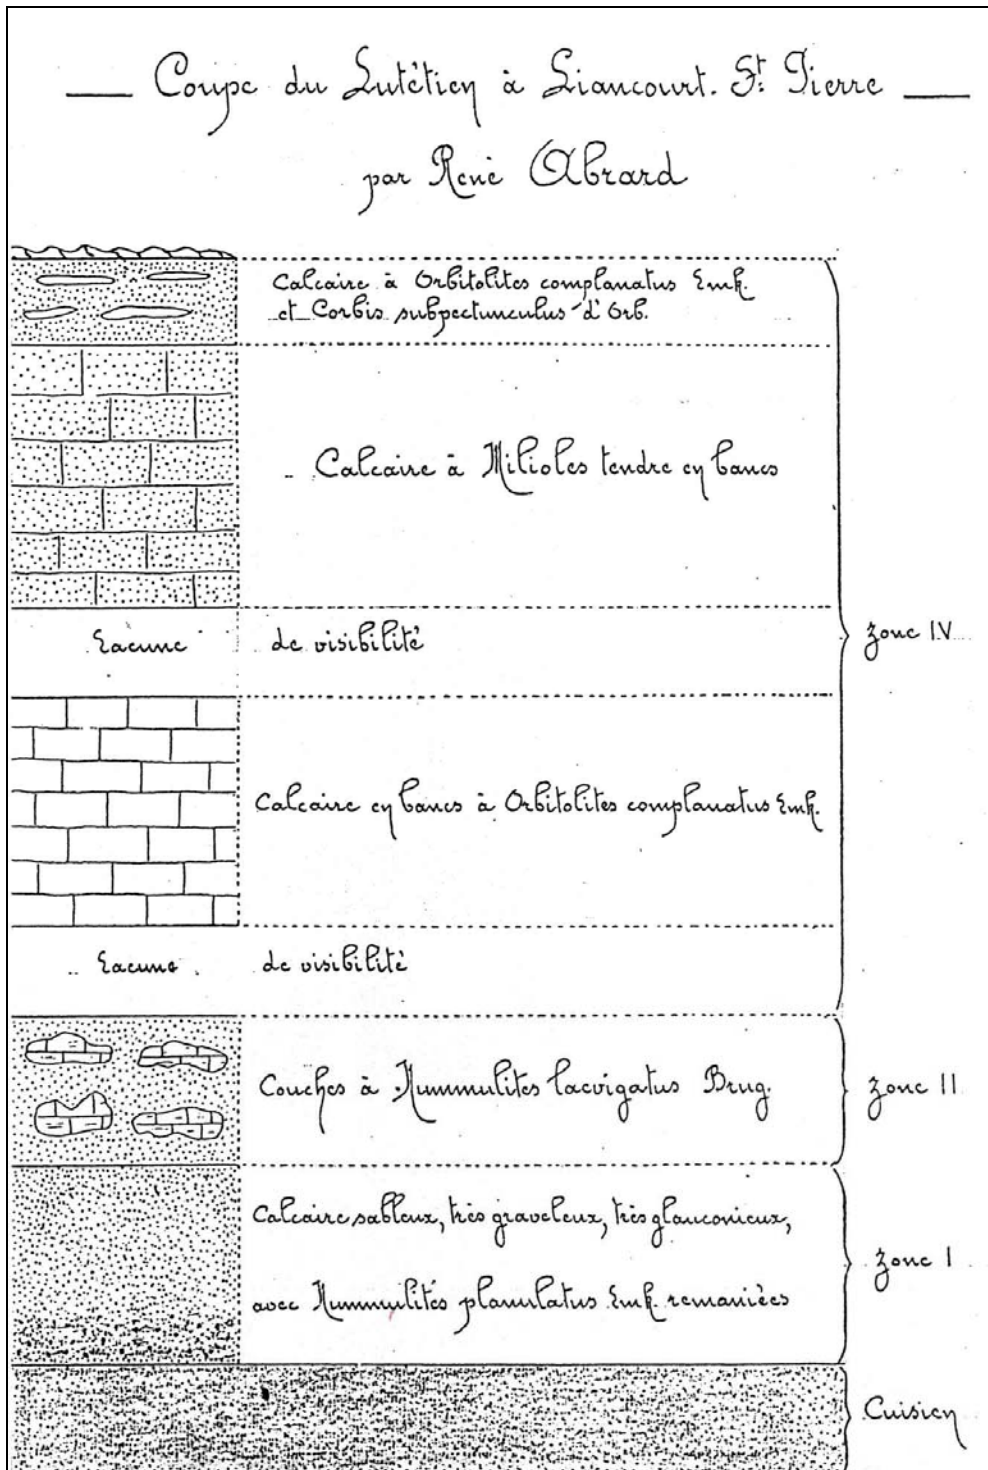 Coupe du Lutétien à Liancourt. St. Pierre
par René Abrard
Calcaire à Orbitolites complanatus Lmk.
et Corbis subpectunculus d'Orb.
Calcaire à Milioles tendre en bancs
Lacune de visibilité
zone IV
Calcaire en bancs à Orbitolites complanatus Lmk.
Lacune de visibilité
Couches à Nummulites laevigatus Brug.
zone II
Calcaire sableux, très graveleux, très glauconieux,
avec Nummulités planulatus Lmk. remaniées
zone I
Cuisien